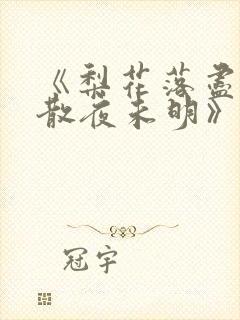 《梨花落盡
散夜未明》
冠宇